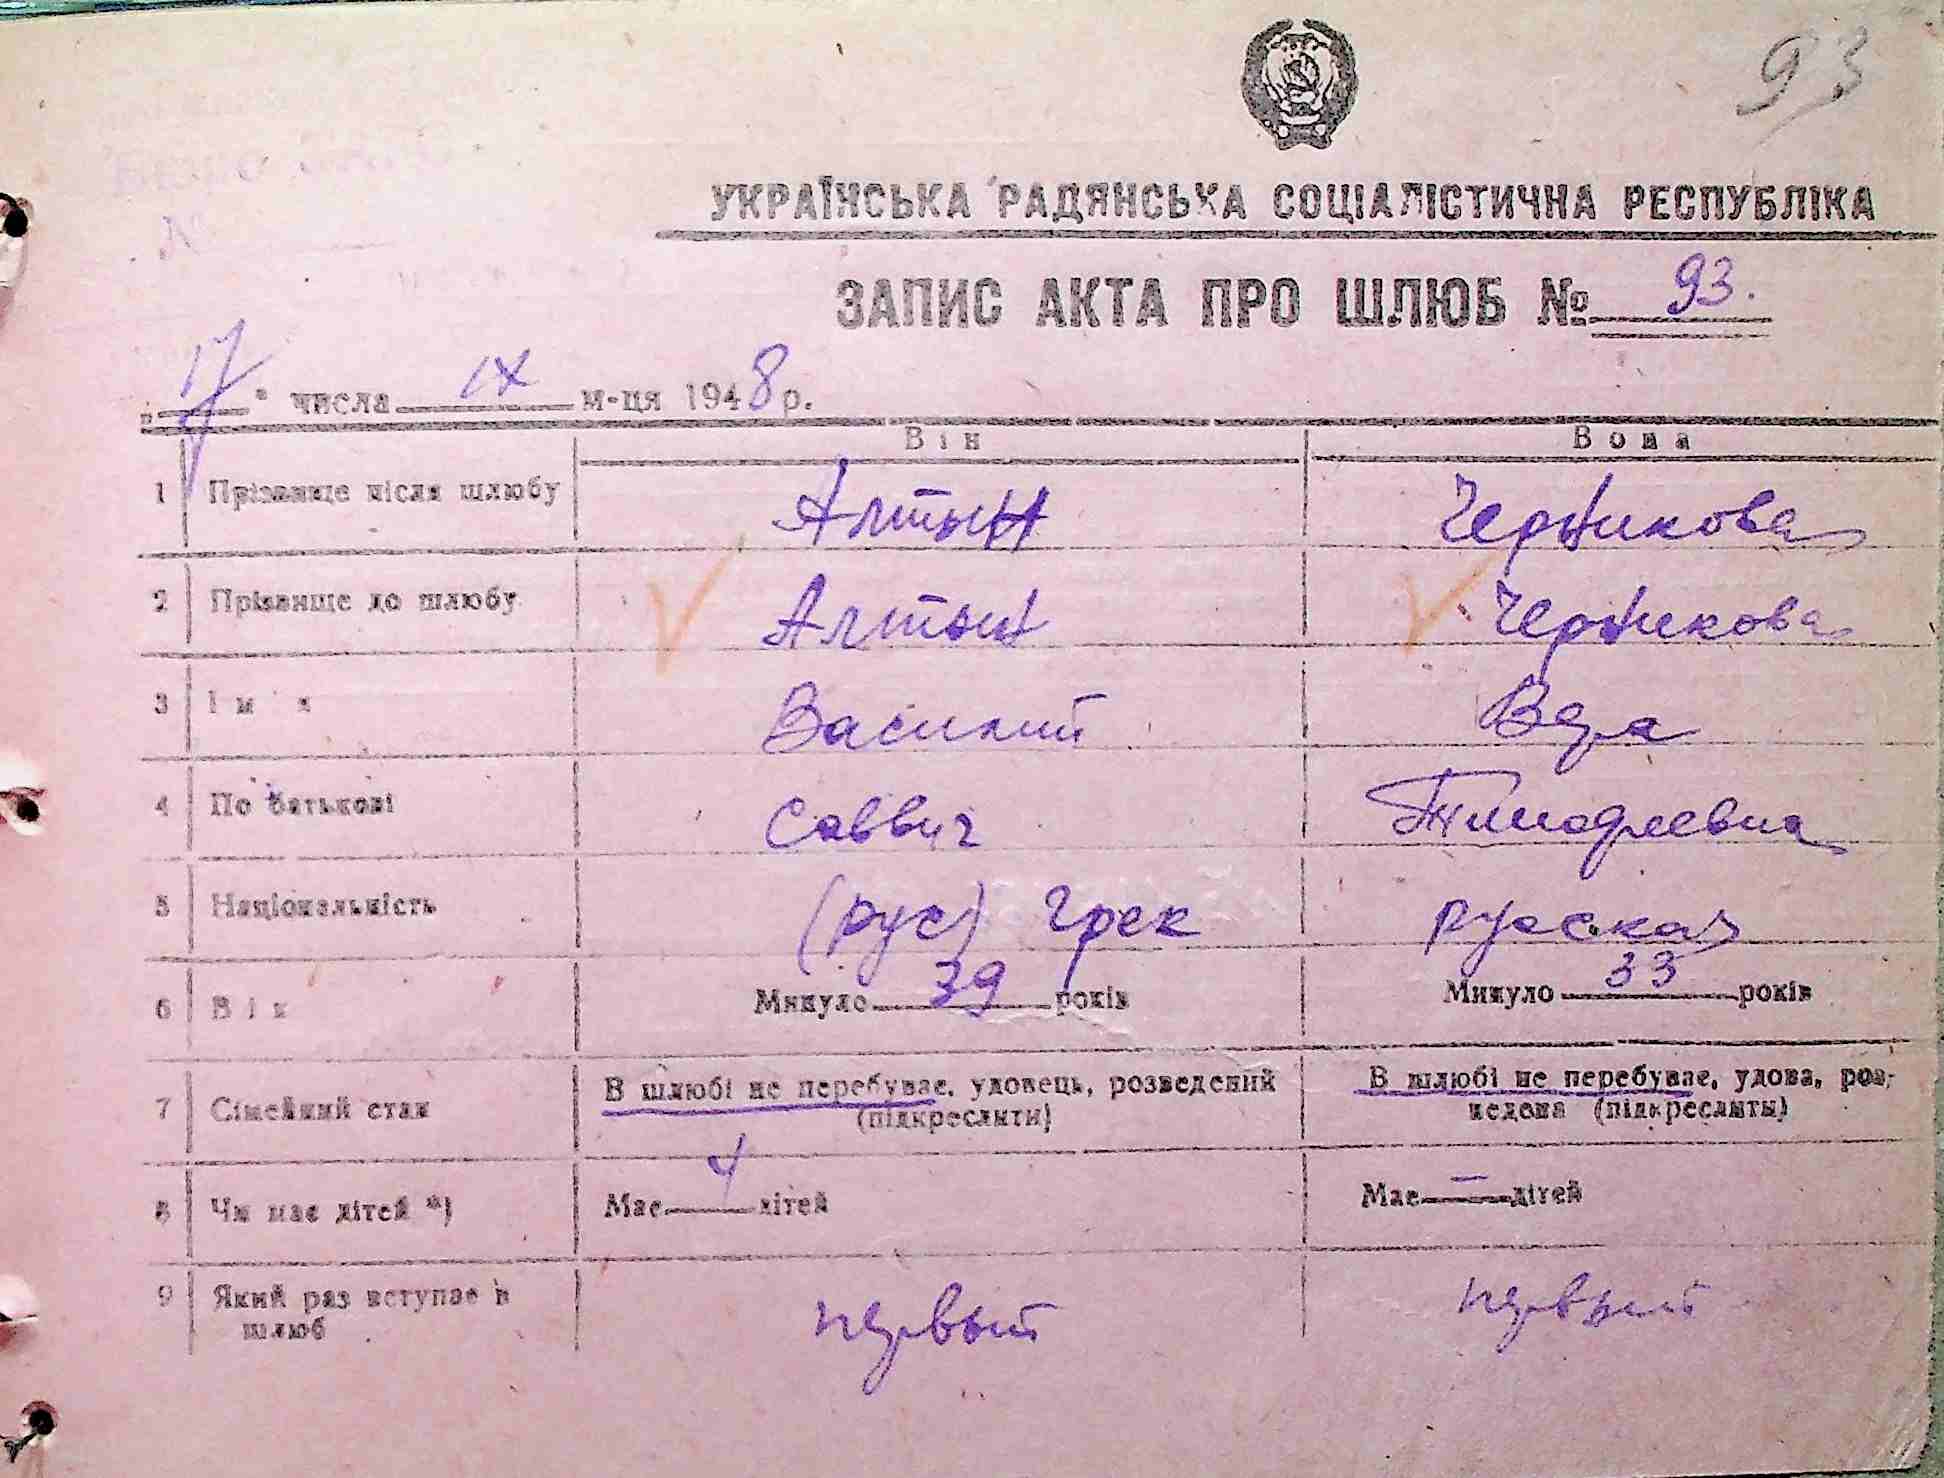 93
УКРАЇНСЬКА РАДЯНСЬКА СОЦІАЛІСТИЧНА РЕСПУБЛІКА
ЗАПИС АКТА ПРО ШЛЮБ № 93.
„17" числа IX м-ця 1948 р.
Він Вона
1 Прізвище після шлюбу Алтын Черникова
2 Прізвище до шлюбу Алтын Черникова
3 Ім'я Василий Вера
4 По батькові Саввич Тимофеевна
5 Національність (рус) грек русская
6 Вік Минуло 39 років Минуло 33 років
7 Сімейний стан В шлюбі не перебуває, удовець, розведений (підкреслити) В шлюбі не перебуває, удова, роз-
ведена (підкреслити)
8 Чи має дітей *) Має 4 дітей Має — дітей
9 Який раз вступає в первый первый
шлюб